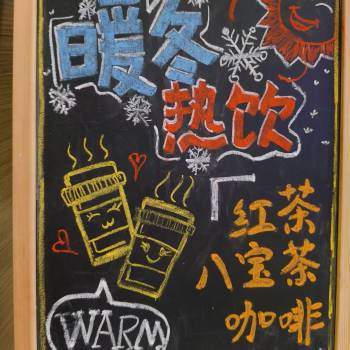 暖冬
热饮
红茶
八宝茶
咖啡
WARM